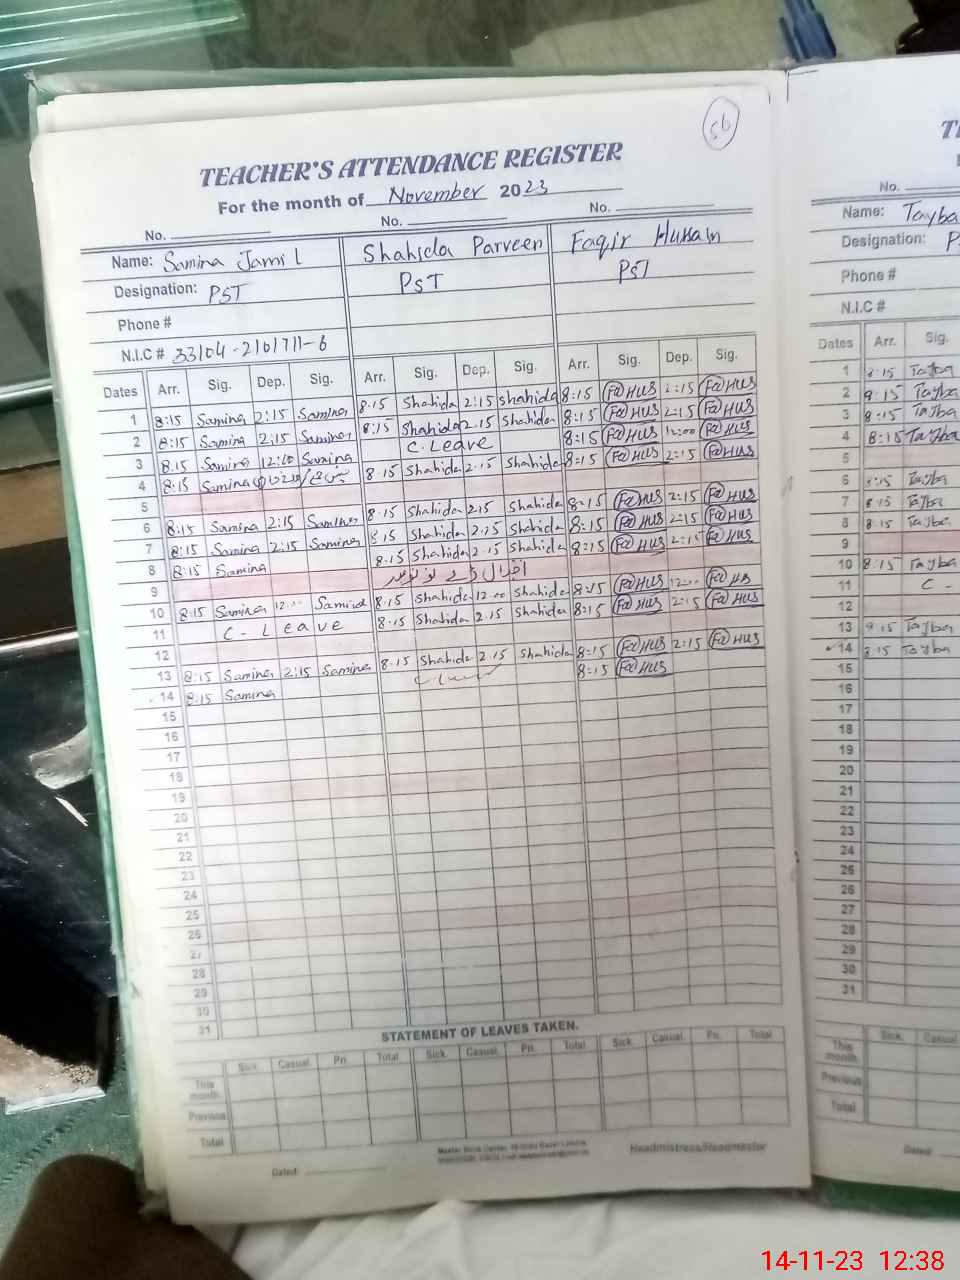 56
TEACHER'S ATTENDANCE REGISTER
For the month of November 2023
No. No. No.
Name: Samina Jamil Shahida Parveen Faqir Hussain
Designation: PST PST PST
Phone #
N.I.C # 33104-2101711-6
Dates Arr. Sig. Dep. Sig. Arr. Sig. Dep. Sig. Arr. Sig. Dep. Sig.
1 8:15 Samina 2:15 Samina 8.15 Shahida 2:15 Shahida 8:15 Fa HUS 2:15 Fa HUS
2 8:15 Samina 2:15 Samina 8:15 Shahida 2.15 Shahida 8:15 Fa HUS 2:15 Fa HUS
3 8.15 Samina 12:00 Samina C. Leave 8:15 Fa HUS 12:00 Fa HUS
4 8:15 Samina 8.15 Shahida 2.15 Shahida 8:15 Fa HUS 2:15 Fa HUS
5
6 8:15 Samina 2:15 Samina 8.15 Shahida 2.15 Shahida 8:15 Fa HUS 2:15 Fa HUS
7 8:15 Samina 2:15 Samina 8.15 Shahida 2.15 Shahida 8:15 Fa HUS 2:15 Fa HUS
8 8:15 Samina 8.15 Shahida 2.15 Shahida 8:15 Fa HUS 2:15 Fa HUS
9 اقبال ڈے 9 نومبر
10 8:15 Samina 12:00 Samina 8.15 Shahida 12.00 Shahida 8:15 Fa HUS 12:00 Fa HUS
11 C - Leave 8.15 Shahida 2.15 Shahida 8:15 Fa HUS 2:15 Fa HUS
12
13 8:15 Samina 2:15 Samina 8.15 Shahida 2.15 Shahida 8:15 Fa HUS 2:15 Fa HUS
14 8:15 Samina 8:15 Fa HUS
15
16
17
18
19
20
21
22
23
24
25
26
27
28
29
30
31
STATEMENT OF LEAVES TAKEN.
Sick. Casual. Pri. Total Sick. Casual. Pri. Total Sick. Casual. Pri. Total
This month.
Previous
Total
Headmistress/Headmaster
Dated:
No.
Name: Tayba
Designation:
Phone #
N.I.C #
Dates Arr. Sig.
1 8:15 Tayba
2 8:15 Tayba
3 8:15 Tayba
4 8:15 Tayba
5
6 8:15 Tayba
7 8:15 Tayba
8 8.15 Tayba
9
10 8:15 Tayba
11 C -
12
13 8:15 Tayba
14 8:15 Tayba
15
16
17
18
19
20
21
22
23
24
25
26
27
28
29
30
31
Sick. Casual
This month
Previous
Total
Dated:
14-11-23 12:38